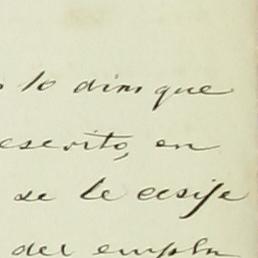 lo dins que
escrito, en
se le exije
del empla